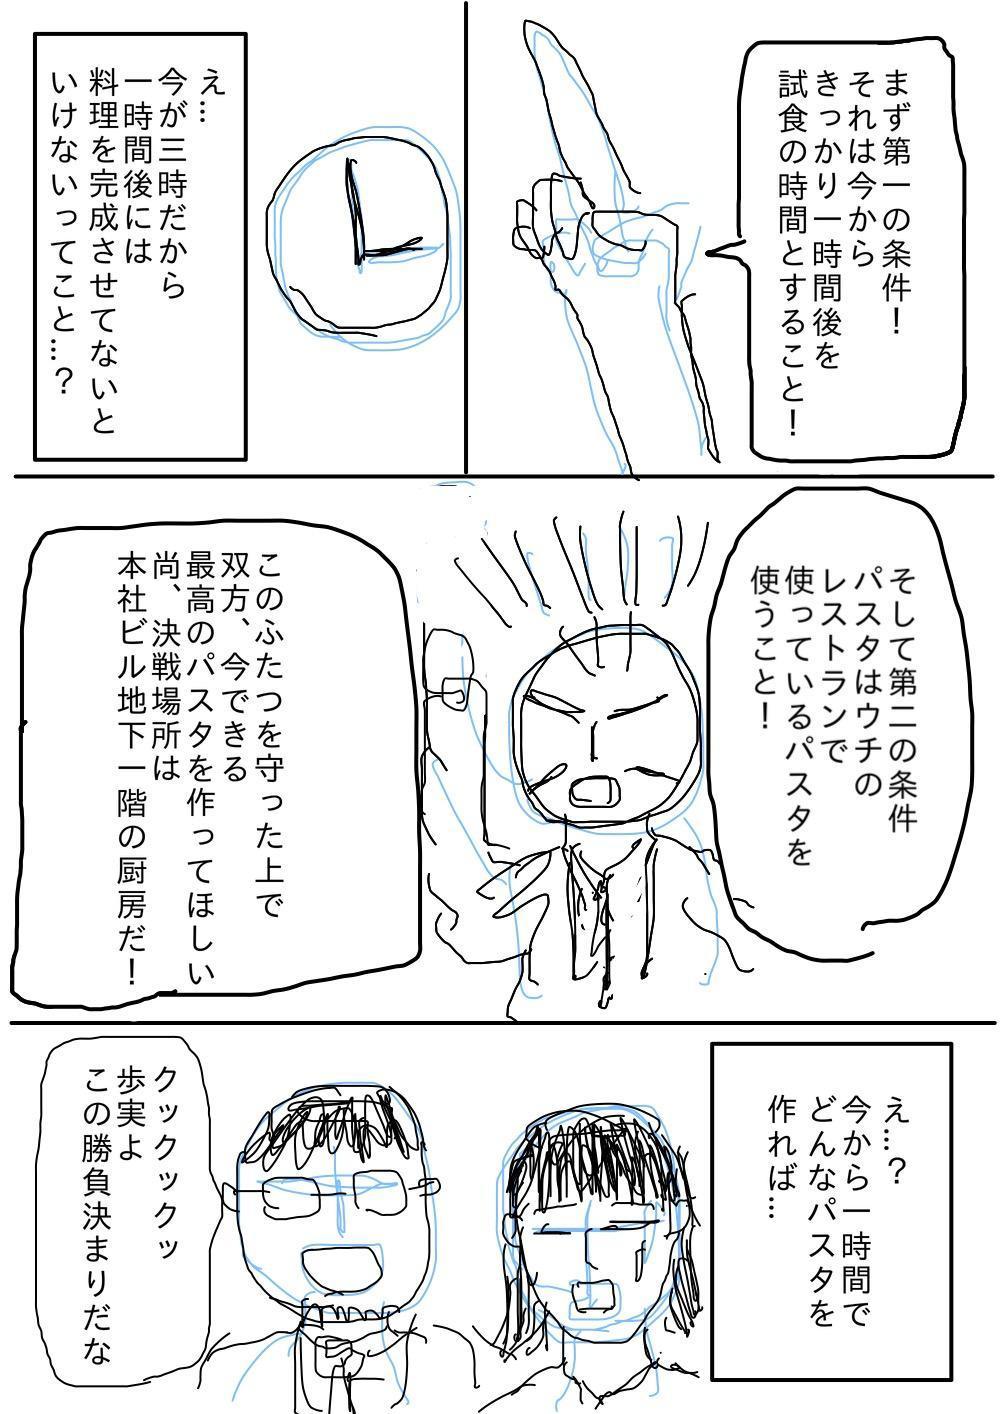 まず第一の条件！
それは今から
きっかり一時間後を
試食の時間とすること！
え…
今が三時だから
一時間後には
料理を完成させてないと
いけないってこと…？
そして第二の条件
パスタはウチの
レストランで
使っているパスタを
使うこと！
このふたつを守った上で
双方、今できる
最高のパスタを作ってほしい
尚、決戦場所は
本社ビル地下一階の厨房だ！
え…？
今から一時間で
どんなパスタを
作れば…
クックックッ
歩実よ
この勝負決まりだな